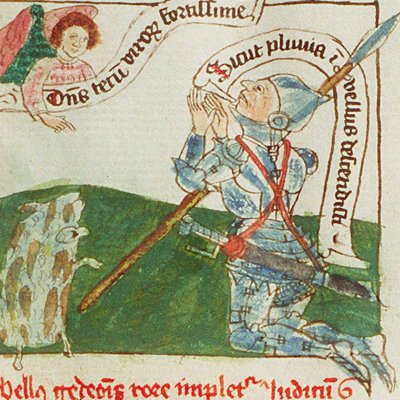 Dn̄s tecū viroꝝ fortissime
Sicut pluvia ī vellus descendisti
Vellꝯ gedeōis rore impletʳ Judicū 6